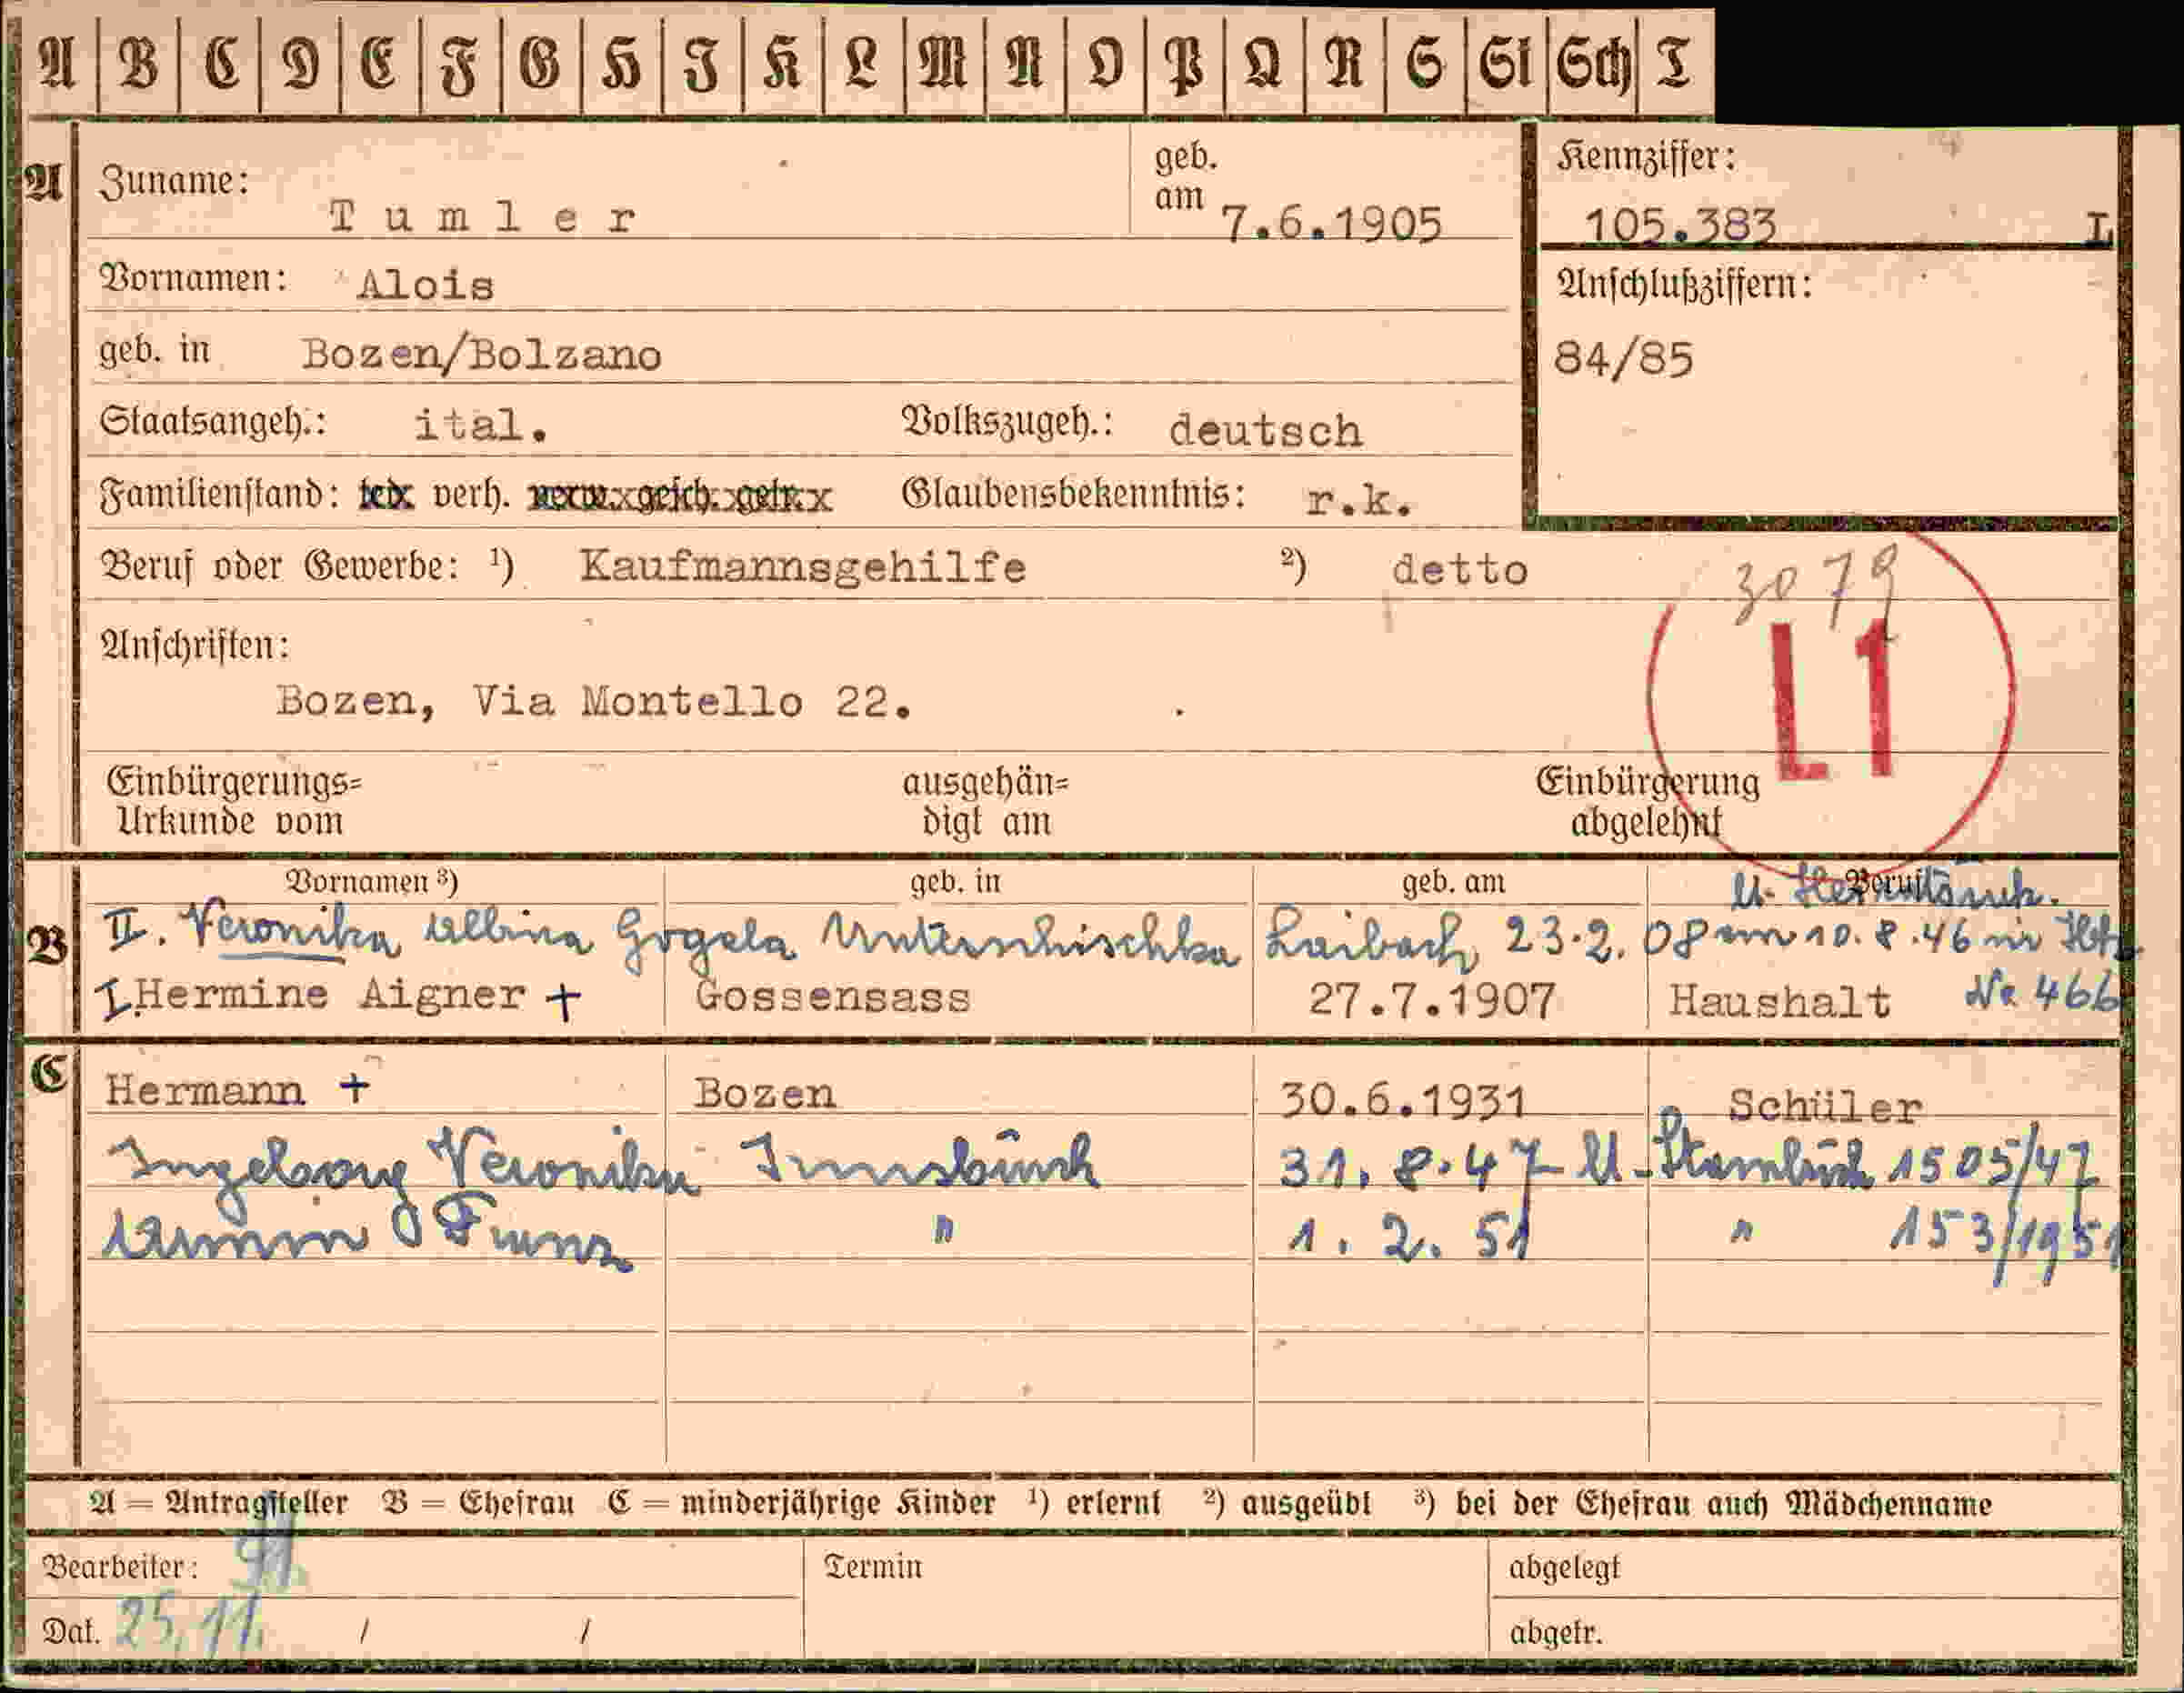 A B C D E F G H I K L M N O P Q R S St Sch T
A Zuname: Tumler geb. am 7.6.1905 Kennziffer: 105.383 L
Vornamen: Alois Anschlußziffern:
geb. in Bozen/Bolzano 84/85
Staatsangeh.: ital. Volkszugeh.: deutsch
Familienstand: led. verh. verw. gesch. getr. Glaubensbekenntnis: r.k.
Beruf oder Gewerbe: ¹) Kaufmannsgehilfe ²) detto 3079
Anschriften: L1
Bozen, Via Montello 22.
Einbürgerungs= ausgehän= Einbürgerung
Urkunde vom digt am abgelehnt
Vornamen ³) geb. in geb. am Beruf
B II. Veronika Albina Gogala Unterschischka Laibach 23.2.08 am 10.8.46 in
I. Hermine Aigner + Gossensass 27.7.1907 Haushalt Nr. 466
C Hermann + Bozen 30.6.1931 Schüler
Ingeborg Veronika Innsbruck 31.8.47 1505/47
Armin Franz " 1.2.51 " 153/1951
A = Antragsteller B = Ehefrau C = minderjährige Kinder ¹) erlernt ²) ausgeübt ³) bei der Ehefrau auch Mädchenname
Bearbeiter: Termin abgelegt
Dat. 25.11. / / abgetr.